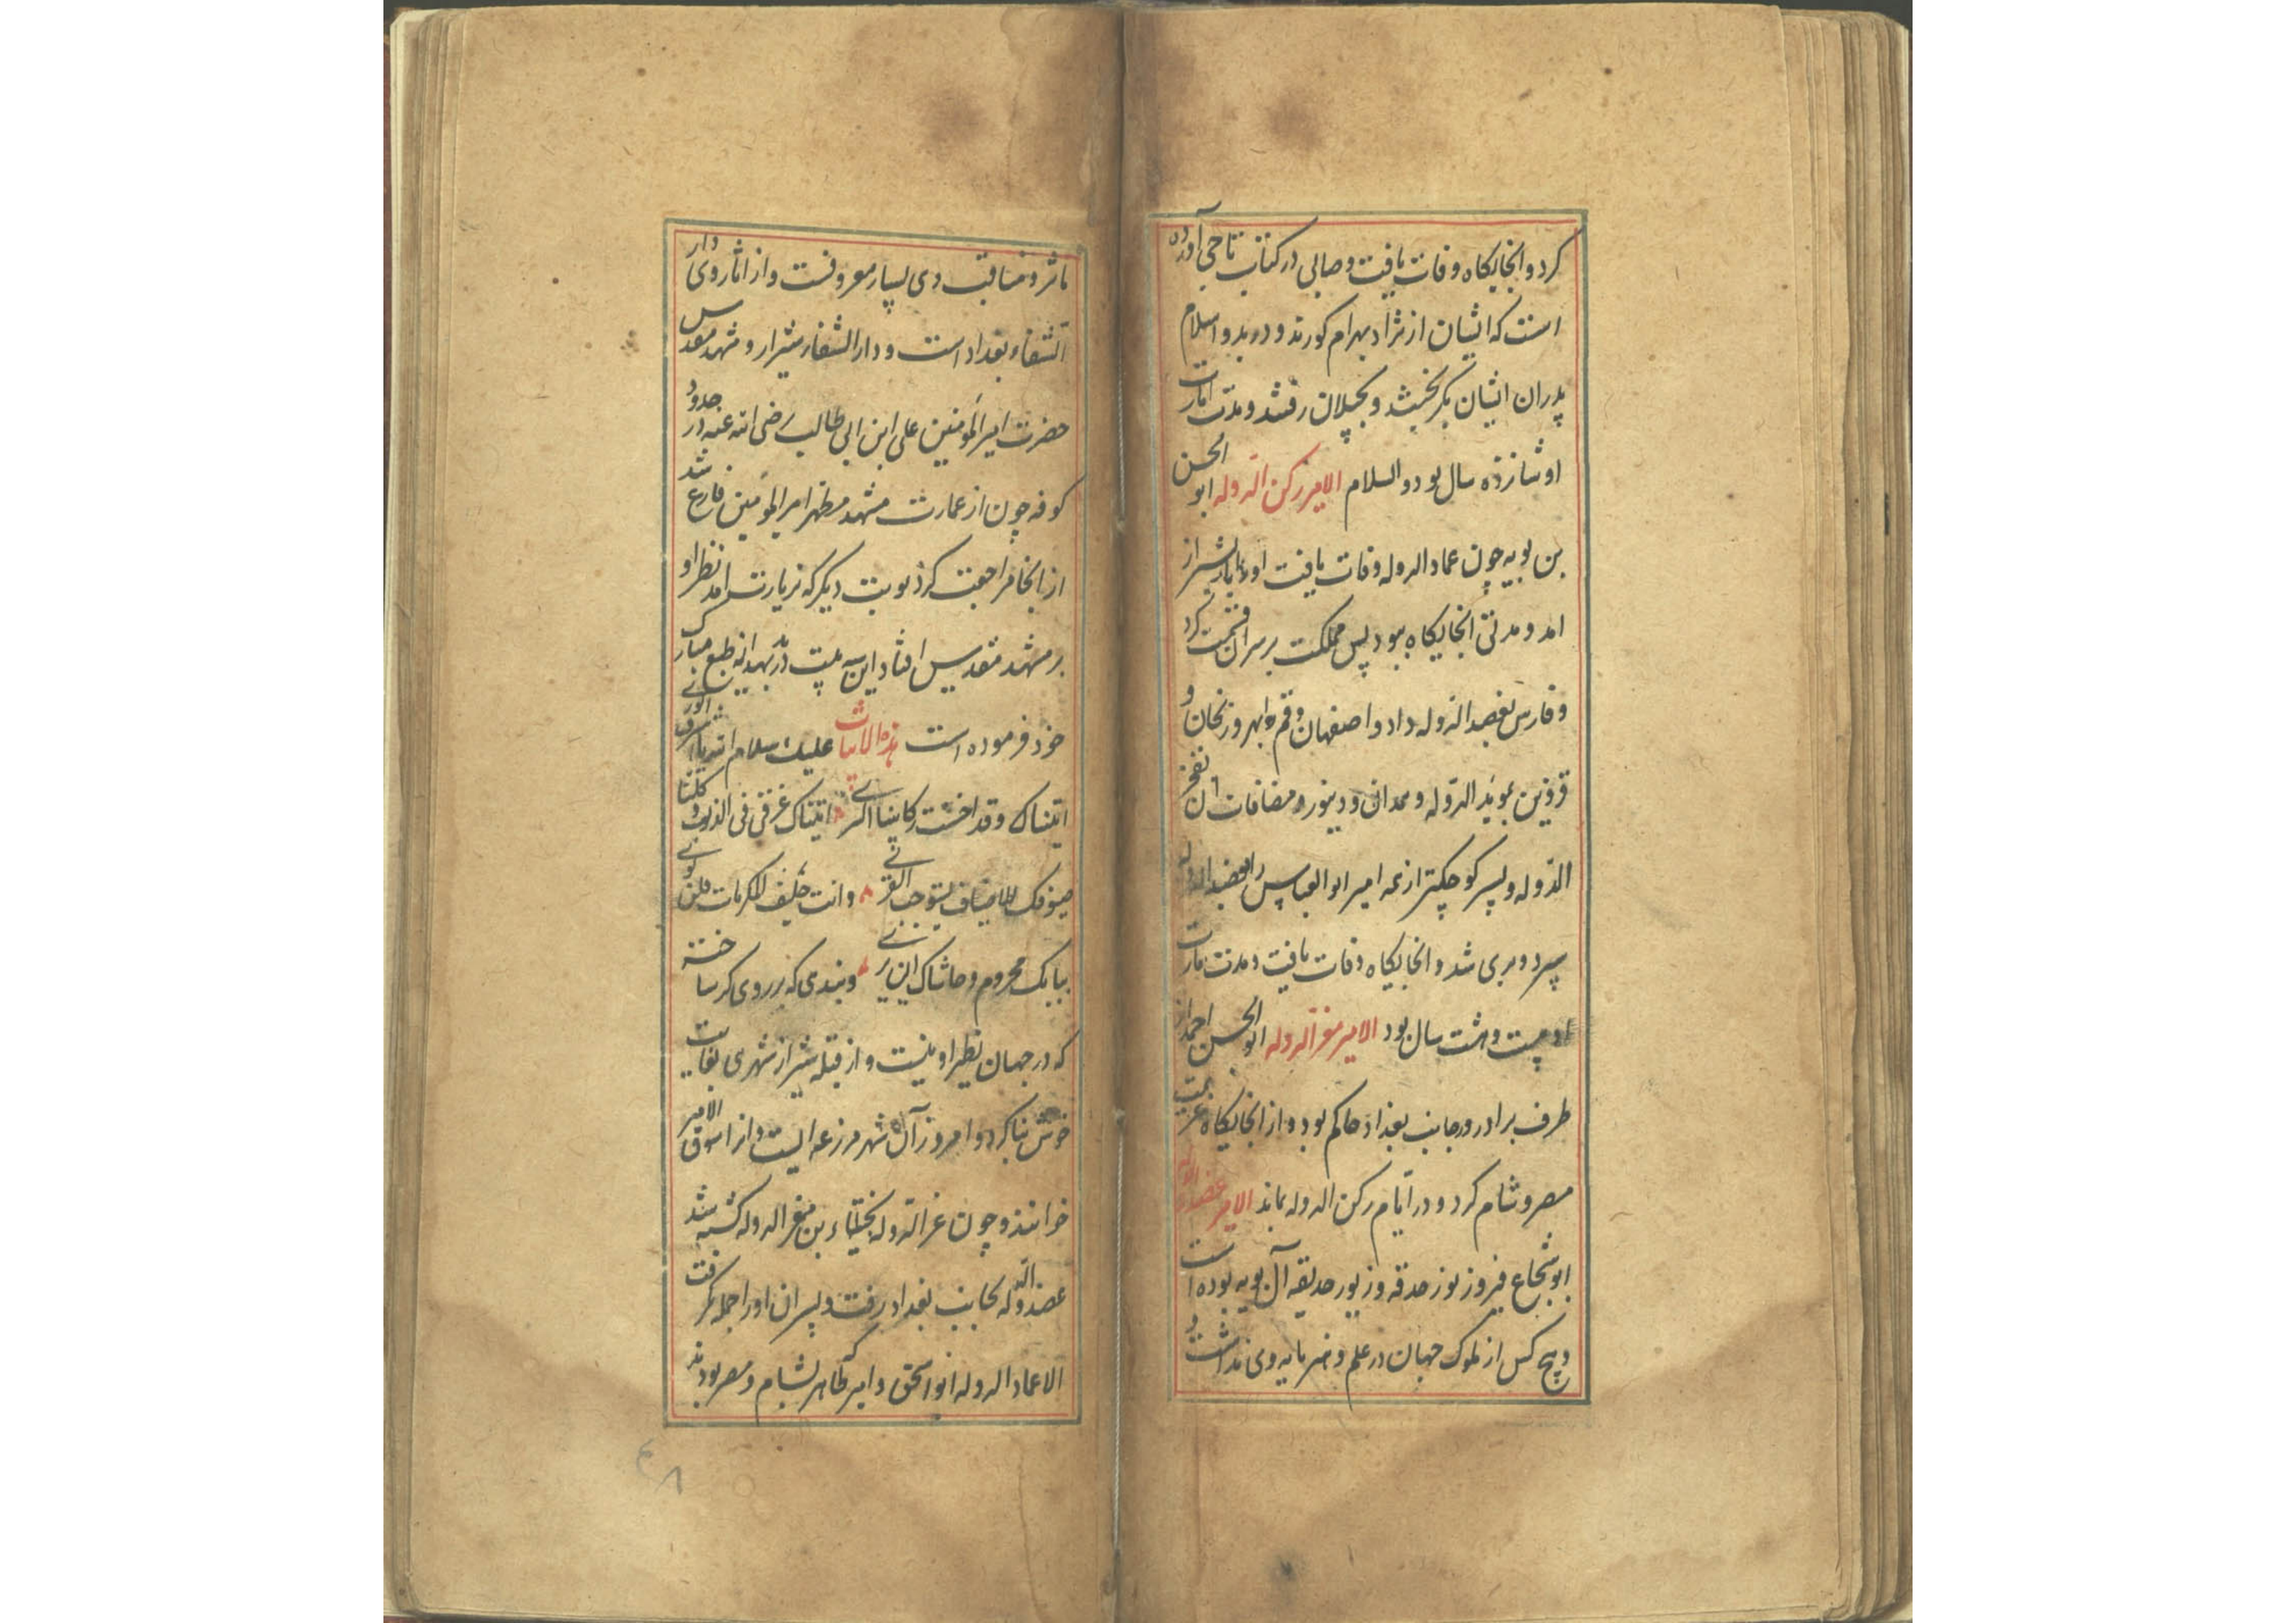 کرد و انجایکاه وفات یافت و صابی در کتاب تاجی آورده
است که ایشان از نژاد بهرام کورند و در بدو اسلام
پدران ایشان بکریختند و بجیلان رفتند و مدت امارت
او شانزده سال بود والسلام الامیر رکن الدوله ابو الحسن
بن بویه چون عماد الدوله وفات یافت او بشیراز
امد و مدتی انجایکاه ببود پس مملکت بر پسران قسمت کرد
و فارس بعضد الدوله داد و اصفهان و قم و ابهر و زنجان و
قزوین بموید الدوله و همدان و دینور و مضافات ان بفخر
الدوله و پسر کوچکتر از همه امیر ابو العباس را بعضد الدوله
سپرد و بری شد و انجایکاه وفات یافت و مدت امارت
او بیست و هشت سال بود الامیر معز الدوله ابو الحسن احمد از
طرف برادر در جانب بغداد حاکم بود و از انجایکاه عزیمت
مصر و شام کرد و در ایام رکن الدوله بماند الامیر عضد الدوله
ابو شجاع فیروز نور حدقه و زیور حدیقه آل بویه بوده است
و هیچ کس از ملوک جهان در علم و هنر پایه وی نداشت و
ماثر و مناقب وی بسیار معروفست و از اثار وی دار
الشفاء بغداد است و دار الشفاء شیراز و مشهد مقدس
حضرت امیر المؤمنین علی ابن ابی طالب رضی الله عنه در حدود
کوفه چون از عمارت مشهد مطهر امیر المؤمنین فارغ شد
از انجا مراجعت کرد نوبت دیکر که بزیارت امد نظر او
بر مشهد مقدس افتاد این سه بیت در بدیهه از طبع مبارک
خود فرموده است هذه الابیات علیک سلام الله یا اشرف الوری
اتیناک وقد اخنت رکابنا السری اتیناک غرقی فی الذنوب و کلنا
ضیوفک للاضیاف یستوجب القری و انت حلیف المکرمات فلن نوی
ببابک محروم و حاشاک ان یری و بندی که بر روی کر ساخته
که در جهان نظیر او نیست و از قبله شیراز شهری بغایت
خوش بنا کرد و امروز آن شهر مزرعه ایست و انرا سوق الامیر
خوانند و چون عز الدوله بختیار بن معز الدوله کشته شد
عضد الدوله بجانب بغداد رفت و پسران او را جمله بکرفت
الا عماد الدوله ابو اسحق و امیر طاهر که بشام و مصر بودند
۴۸